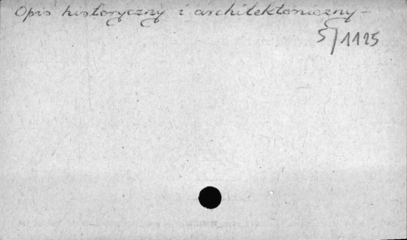 Opis historyczny i architektoniczny –
5/1125